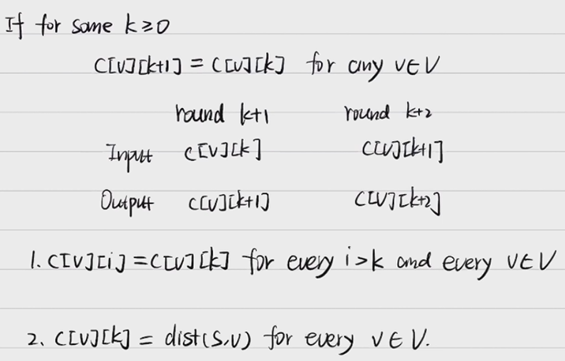 If for some k≥0
C[v][k+1] = C[v][k] for any v∈V
round k+1 round k+2
Input C[v][k] C[v][k+1]
Output C[v][k+1] C[v][k+2]
1. C[v][i] = C[v][k] for every i>k and every v∈V
2. C[v][k] = dist(s,v) for every v∈V.